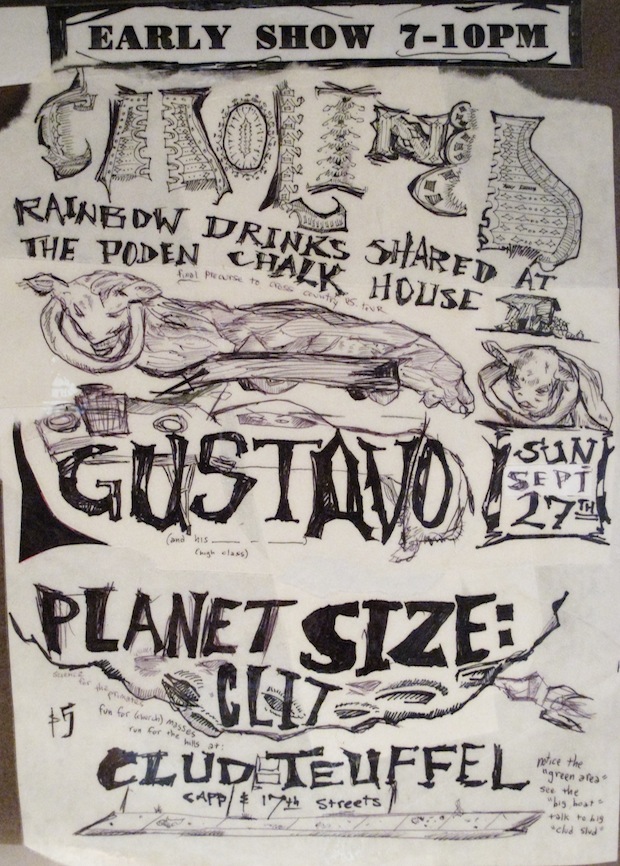 EARLY SHOW 7-10PM
CAROLINER
RAINBOW DRINKS SHARED AT
THE PODEN CHALK HOUSE
final precurse to cross country US. tour
GUSTAVO
(and his
(high class)
SUN
SEPT
27TH
PLANET SIZE:
CLIT
science
for the
primates
fun for (church) masses
run for the hills at:
$5
CLUB TEUFFEL
CAPP & 17th Streets
notice the
"green area"
see the
"big boat"
talk to big
"clud slud"